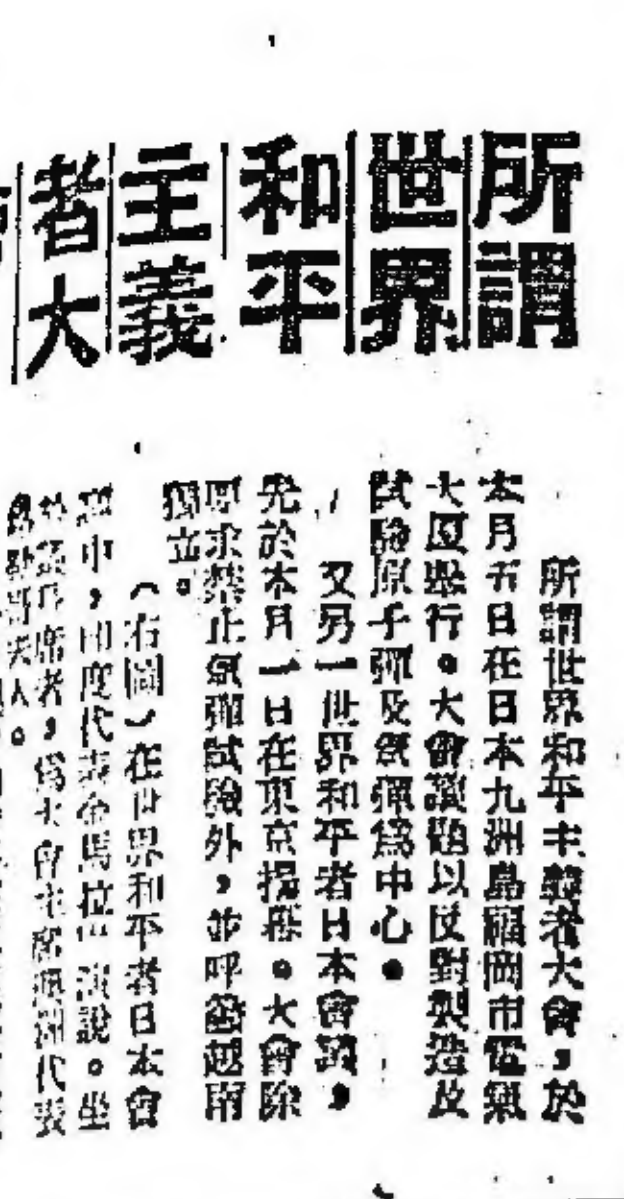 所謂
世界
和平
主義
者大
所謂世界和平主義者大會，於
本月五日在日本九洲島福岡市電氣
大厦舉行。大會議題以反對製造及
試驗原子彈及氫彈爲中心。
又另一世界和平者日本會議，
先於本月一日在東京揭幕。大會除
要求禁止氫彈試驗外，並呼籲越南
獨立。
（右圖）在世界和平者日本會
議中，印度代表馬拉演說。坐
席者，爲大會主席澳洲代表
夫人。